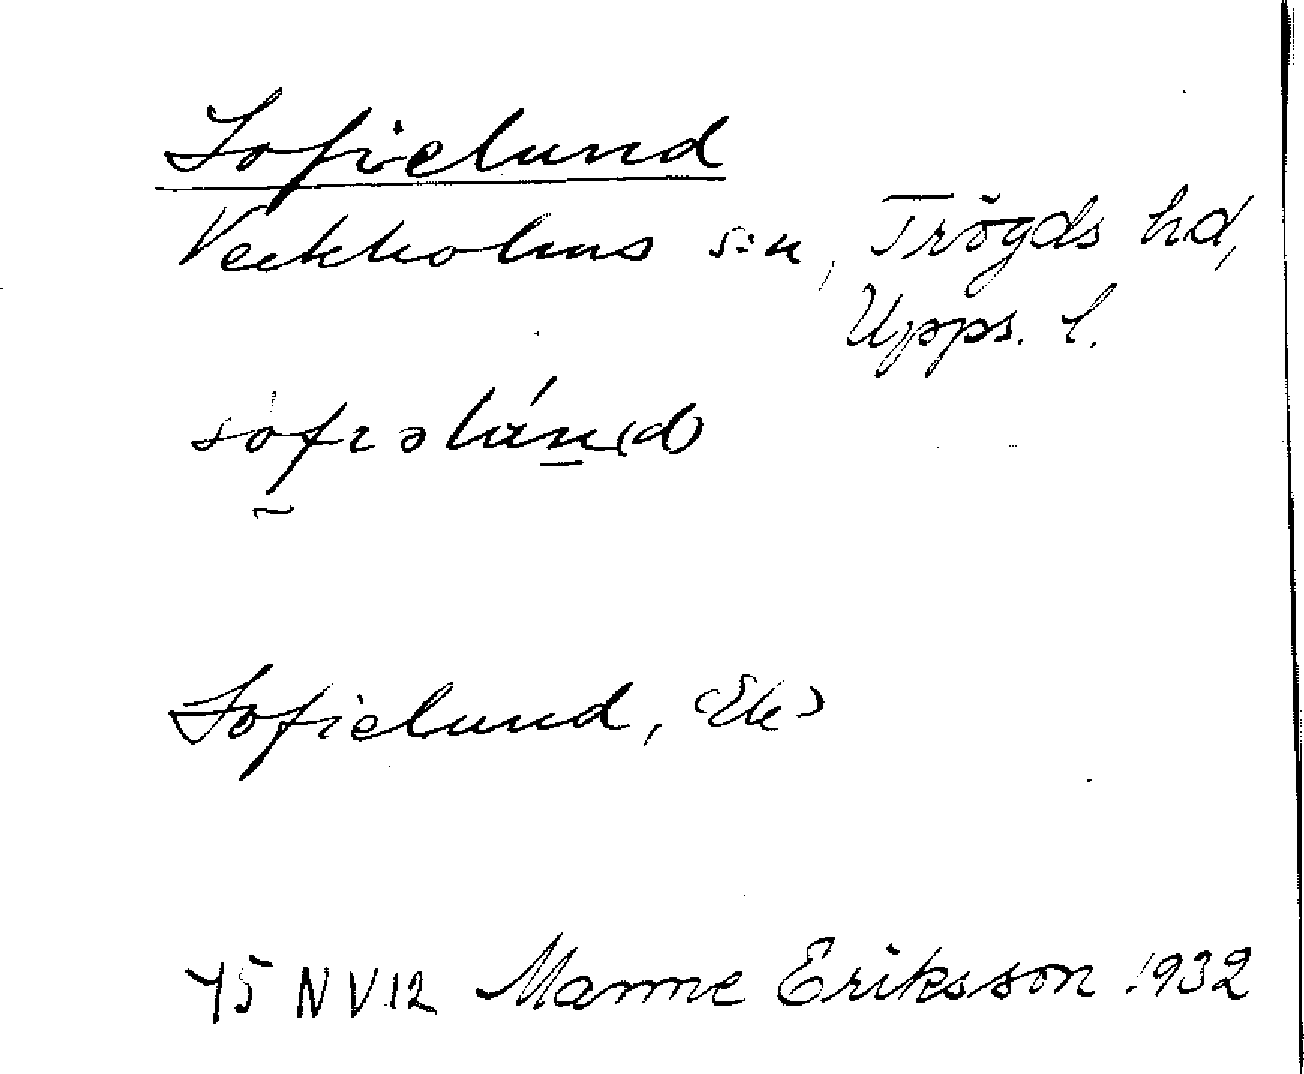 Sofielund
Veckholms s:n, Trögds hd,
Upps. l.
Sofielund, Ek
75 NV 12 Manne Eriksson 1932